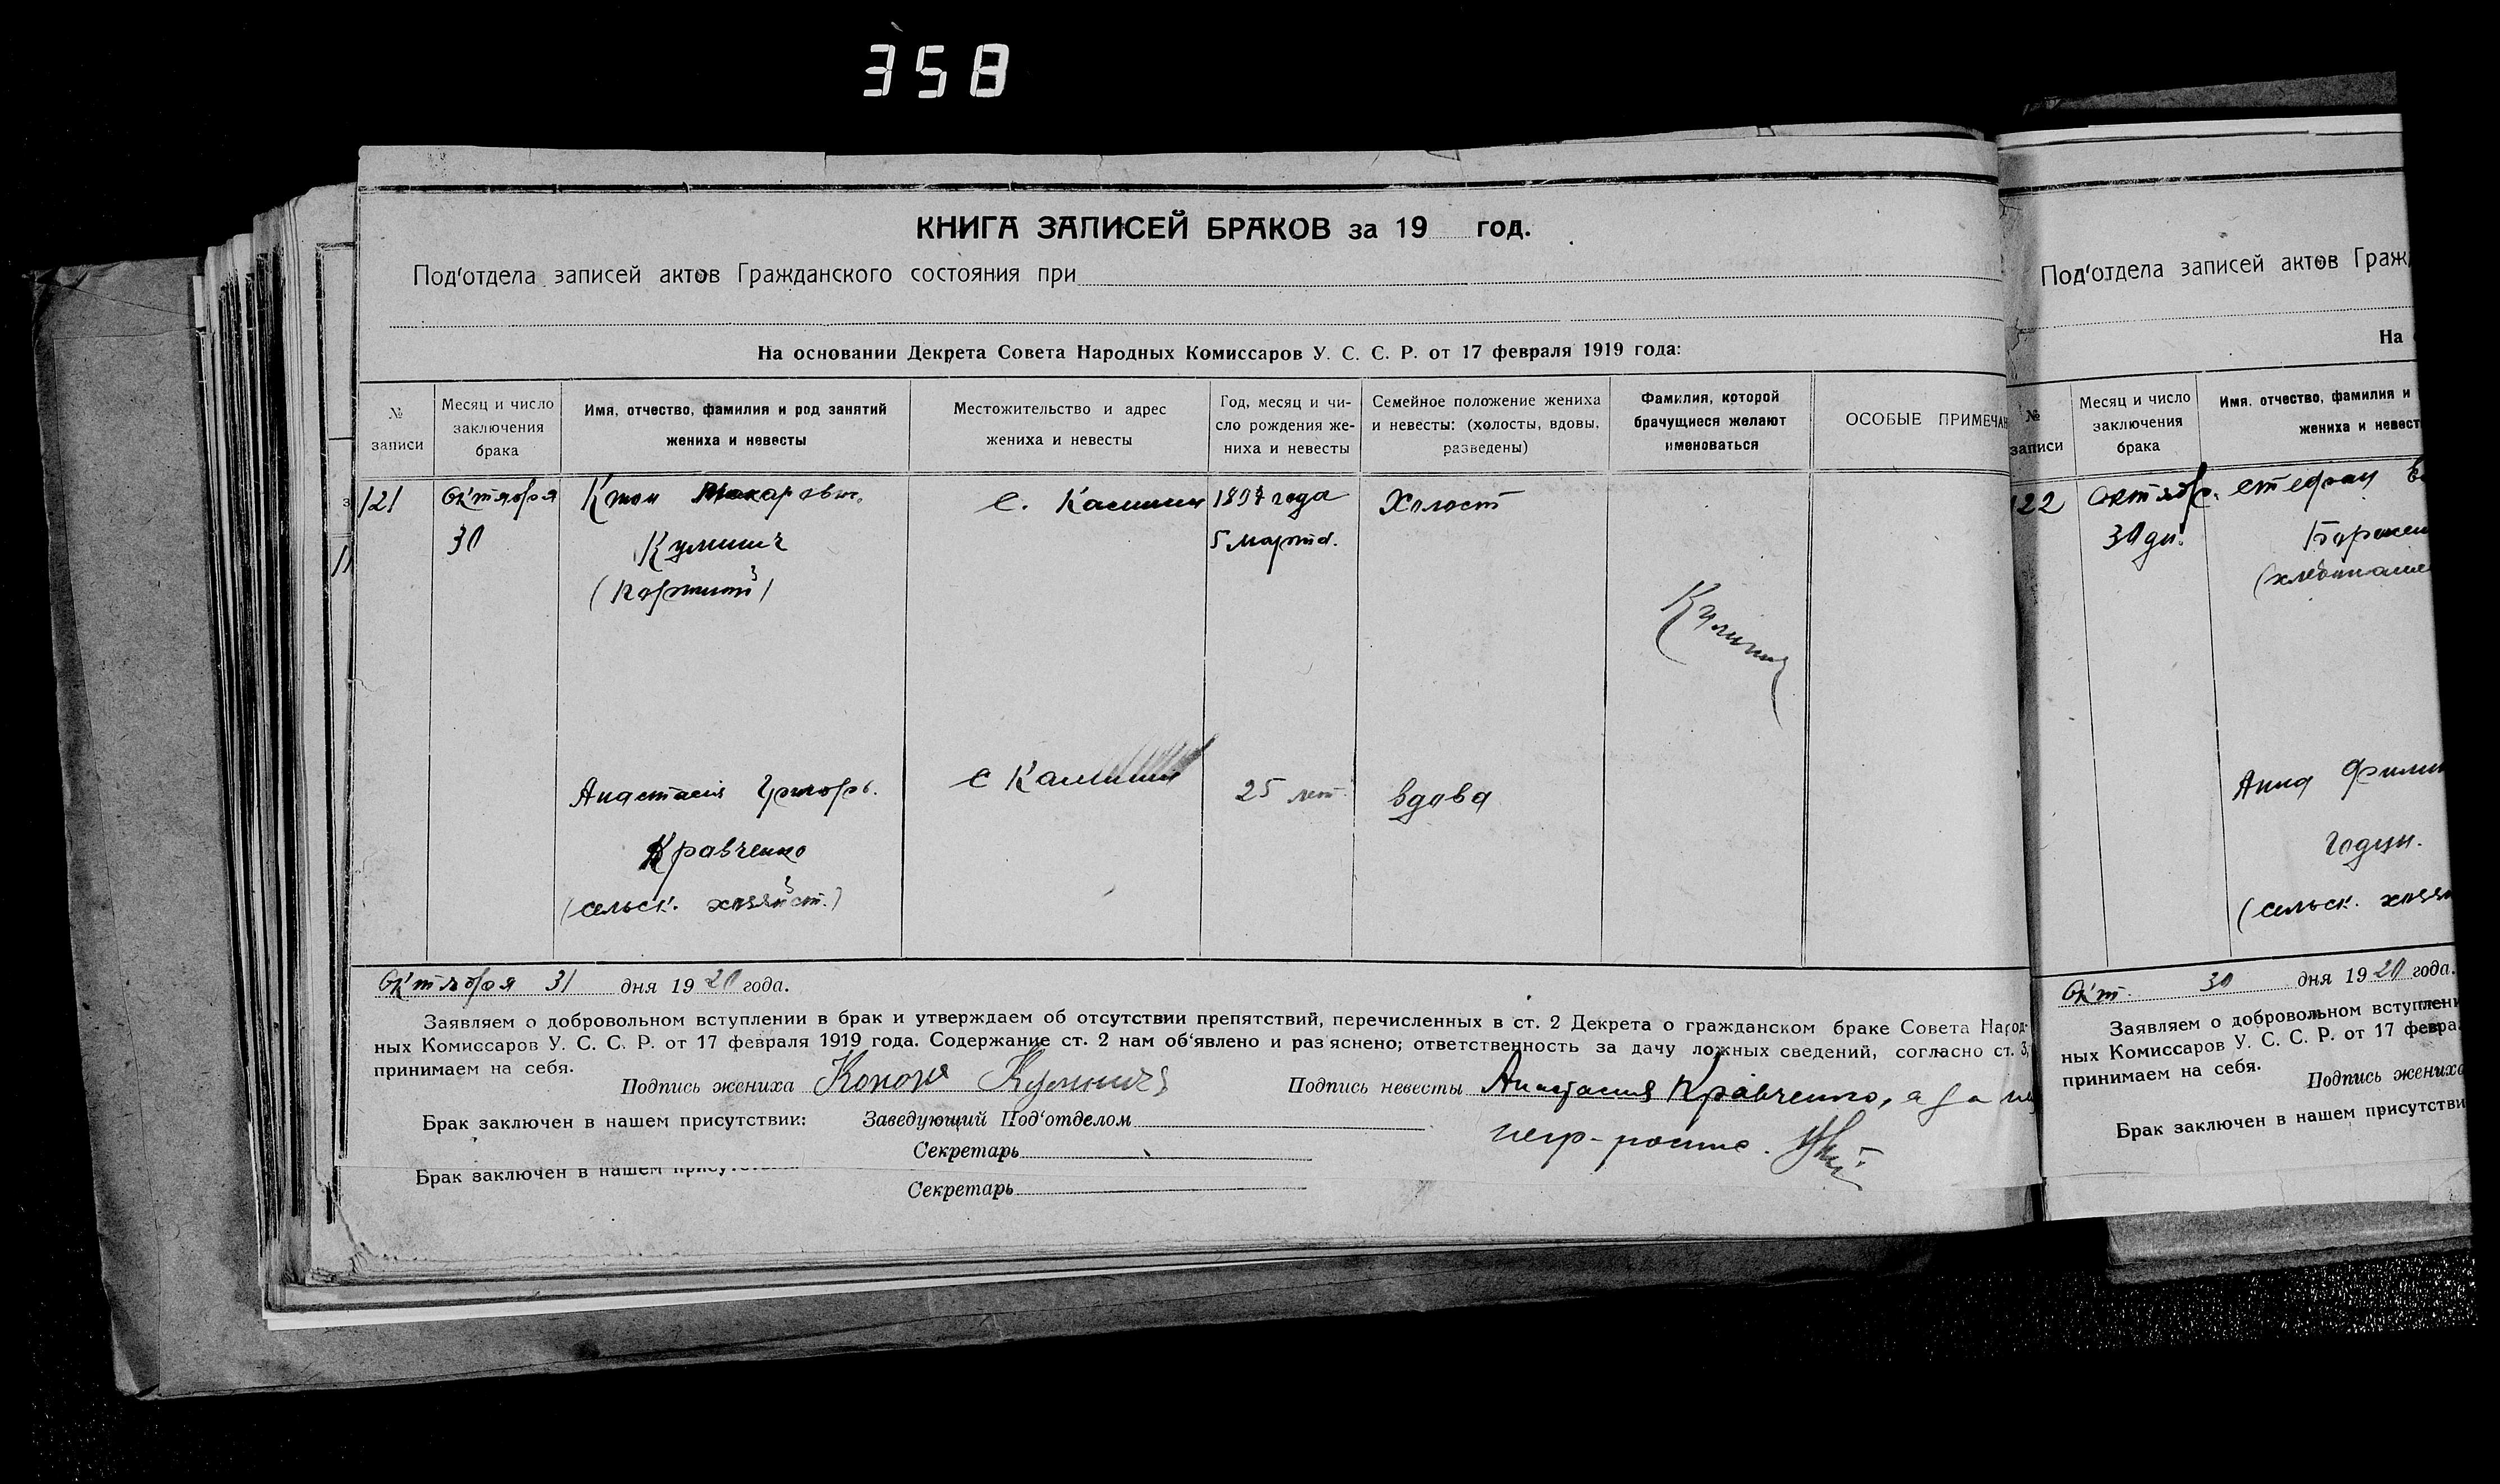 358
КНИГА ЗАПИСЕЙ БРАКОВ за 19 год.
Под'отдела записей актов Гражданского состояния при
На основании Декрета Совета Народных Комиссаров У. С. С. Р. от 17 февраля 1919 года:
№ записи
Месяц и число заключения брака
Имя, отчество, фамилия и род занятий жениха и невесты
Местожительство и адрес жениха и невесты
Год, месяц и число рождения жениха и невесты
Семейное положение жениха и невесты: (холосты, вдовы, разведены)
Фамилия, которой брачущиеся желают именоваться
ОСОБЫЕ ПРИМЕЧАН
121
Октября
30
Макарович.
Кулинич
с.
1897 года
5 марта.
Холост
Кулинич
Анастасия Григорь.
Кравченко
(сельск. хозяйст.)
с
25 лет
вдова
Октября 31 дня 1920 года.
Заявляем о добровольном вступлении в брак и утверждаем об отсутствии препятствий, перечисленных в ст. 2 Декрета о гражданском браке Совета Народ-
ных Комиссаров У. С. С. Р. от 17 февраля 1919 года. Содержание ст. 2 нам об'явлено и раз'яснено; ответственность за дачу ложных сведений, согласно ст. 3,
принимаем на себя.
Подпись жениха Конон Кулинич
Подпись невесты Анастасия Кравченко, а за
Брак заключен в нашем присутствии:
Заведующий Под'отделом
Секретарь
Брак заключен в нашем
Секретарь
Под'отдела записей актов Граж
На
№ записи
Месяц и число заключения брака
Имя, отчество, фамилия и
жениха и невест
22
Октябр.
30 дн.
Стефан
Анна
(сельск.
Окт. 30 дня 1920 года.
Заявляем о добровольном вступлени
ных Комиссаров У. С. С. Р. от 17 февра
принимаем на себя.
Подпись жениха
Брак заключен в нашем присутстви